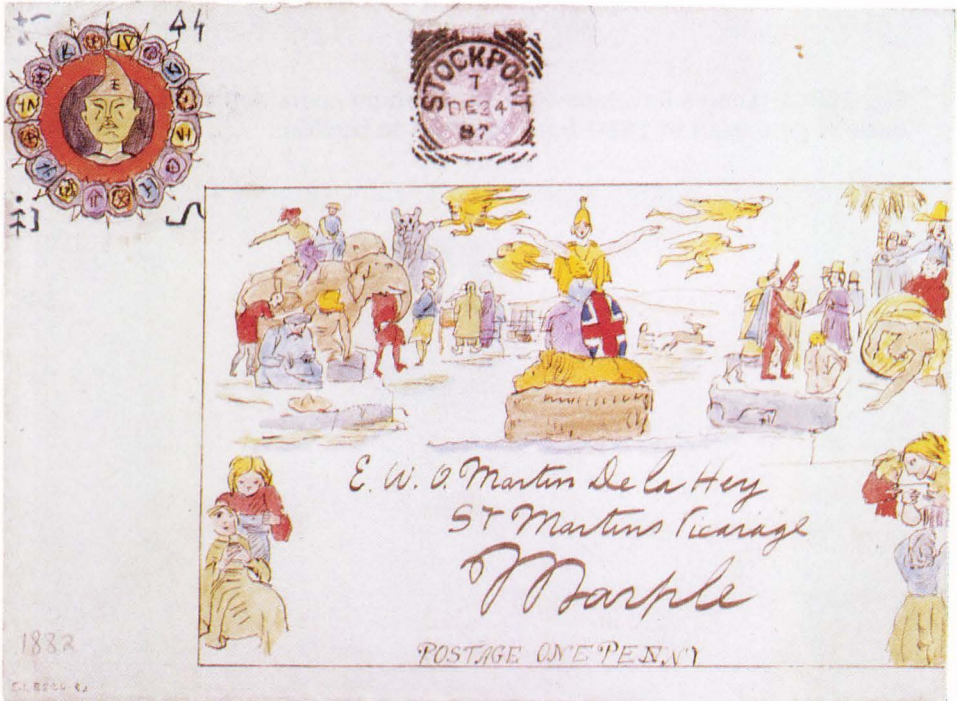 STOCKPORT
7
DE 24
87
E. W. O. Martin De la Hey
St Martins Vicarage
Marple
POSTAGE ONE PENNY
1882